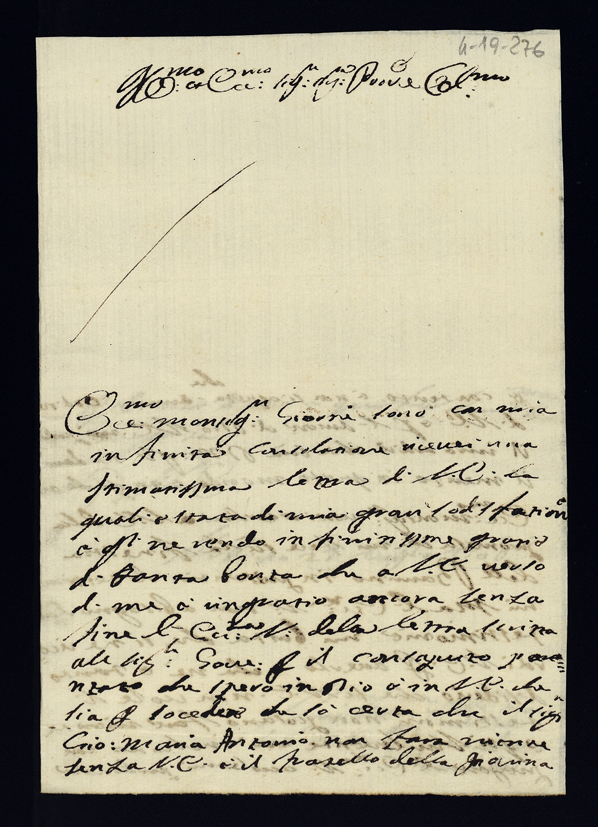 4-19-276
Ill:mo et Ecc:mo Sig:r Sig:r Prone Col:mo
Ecc:mo Monsig:r Giorni sono con mia
infinita consolatione riceuei una
stimatissima letera di V.E. la
quali è stata di mia gran sodisfation
e gli ne rendo infinitissime gratie
di tanta bonta che a V.E. verso
di me e ringratio ancora senza
fine l' Ecc:za V. dela letera scritta
ale Sig:r Gove: p il conseguto
che spero in Dio e in V.E. che
sia p socedere de so certa che il Sig:r
Crio: Maria Antonio non fara niente
senza V.E. e il fratello della Gianna